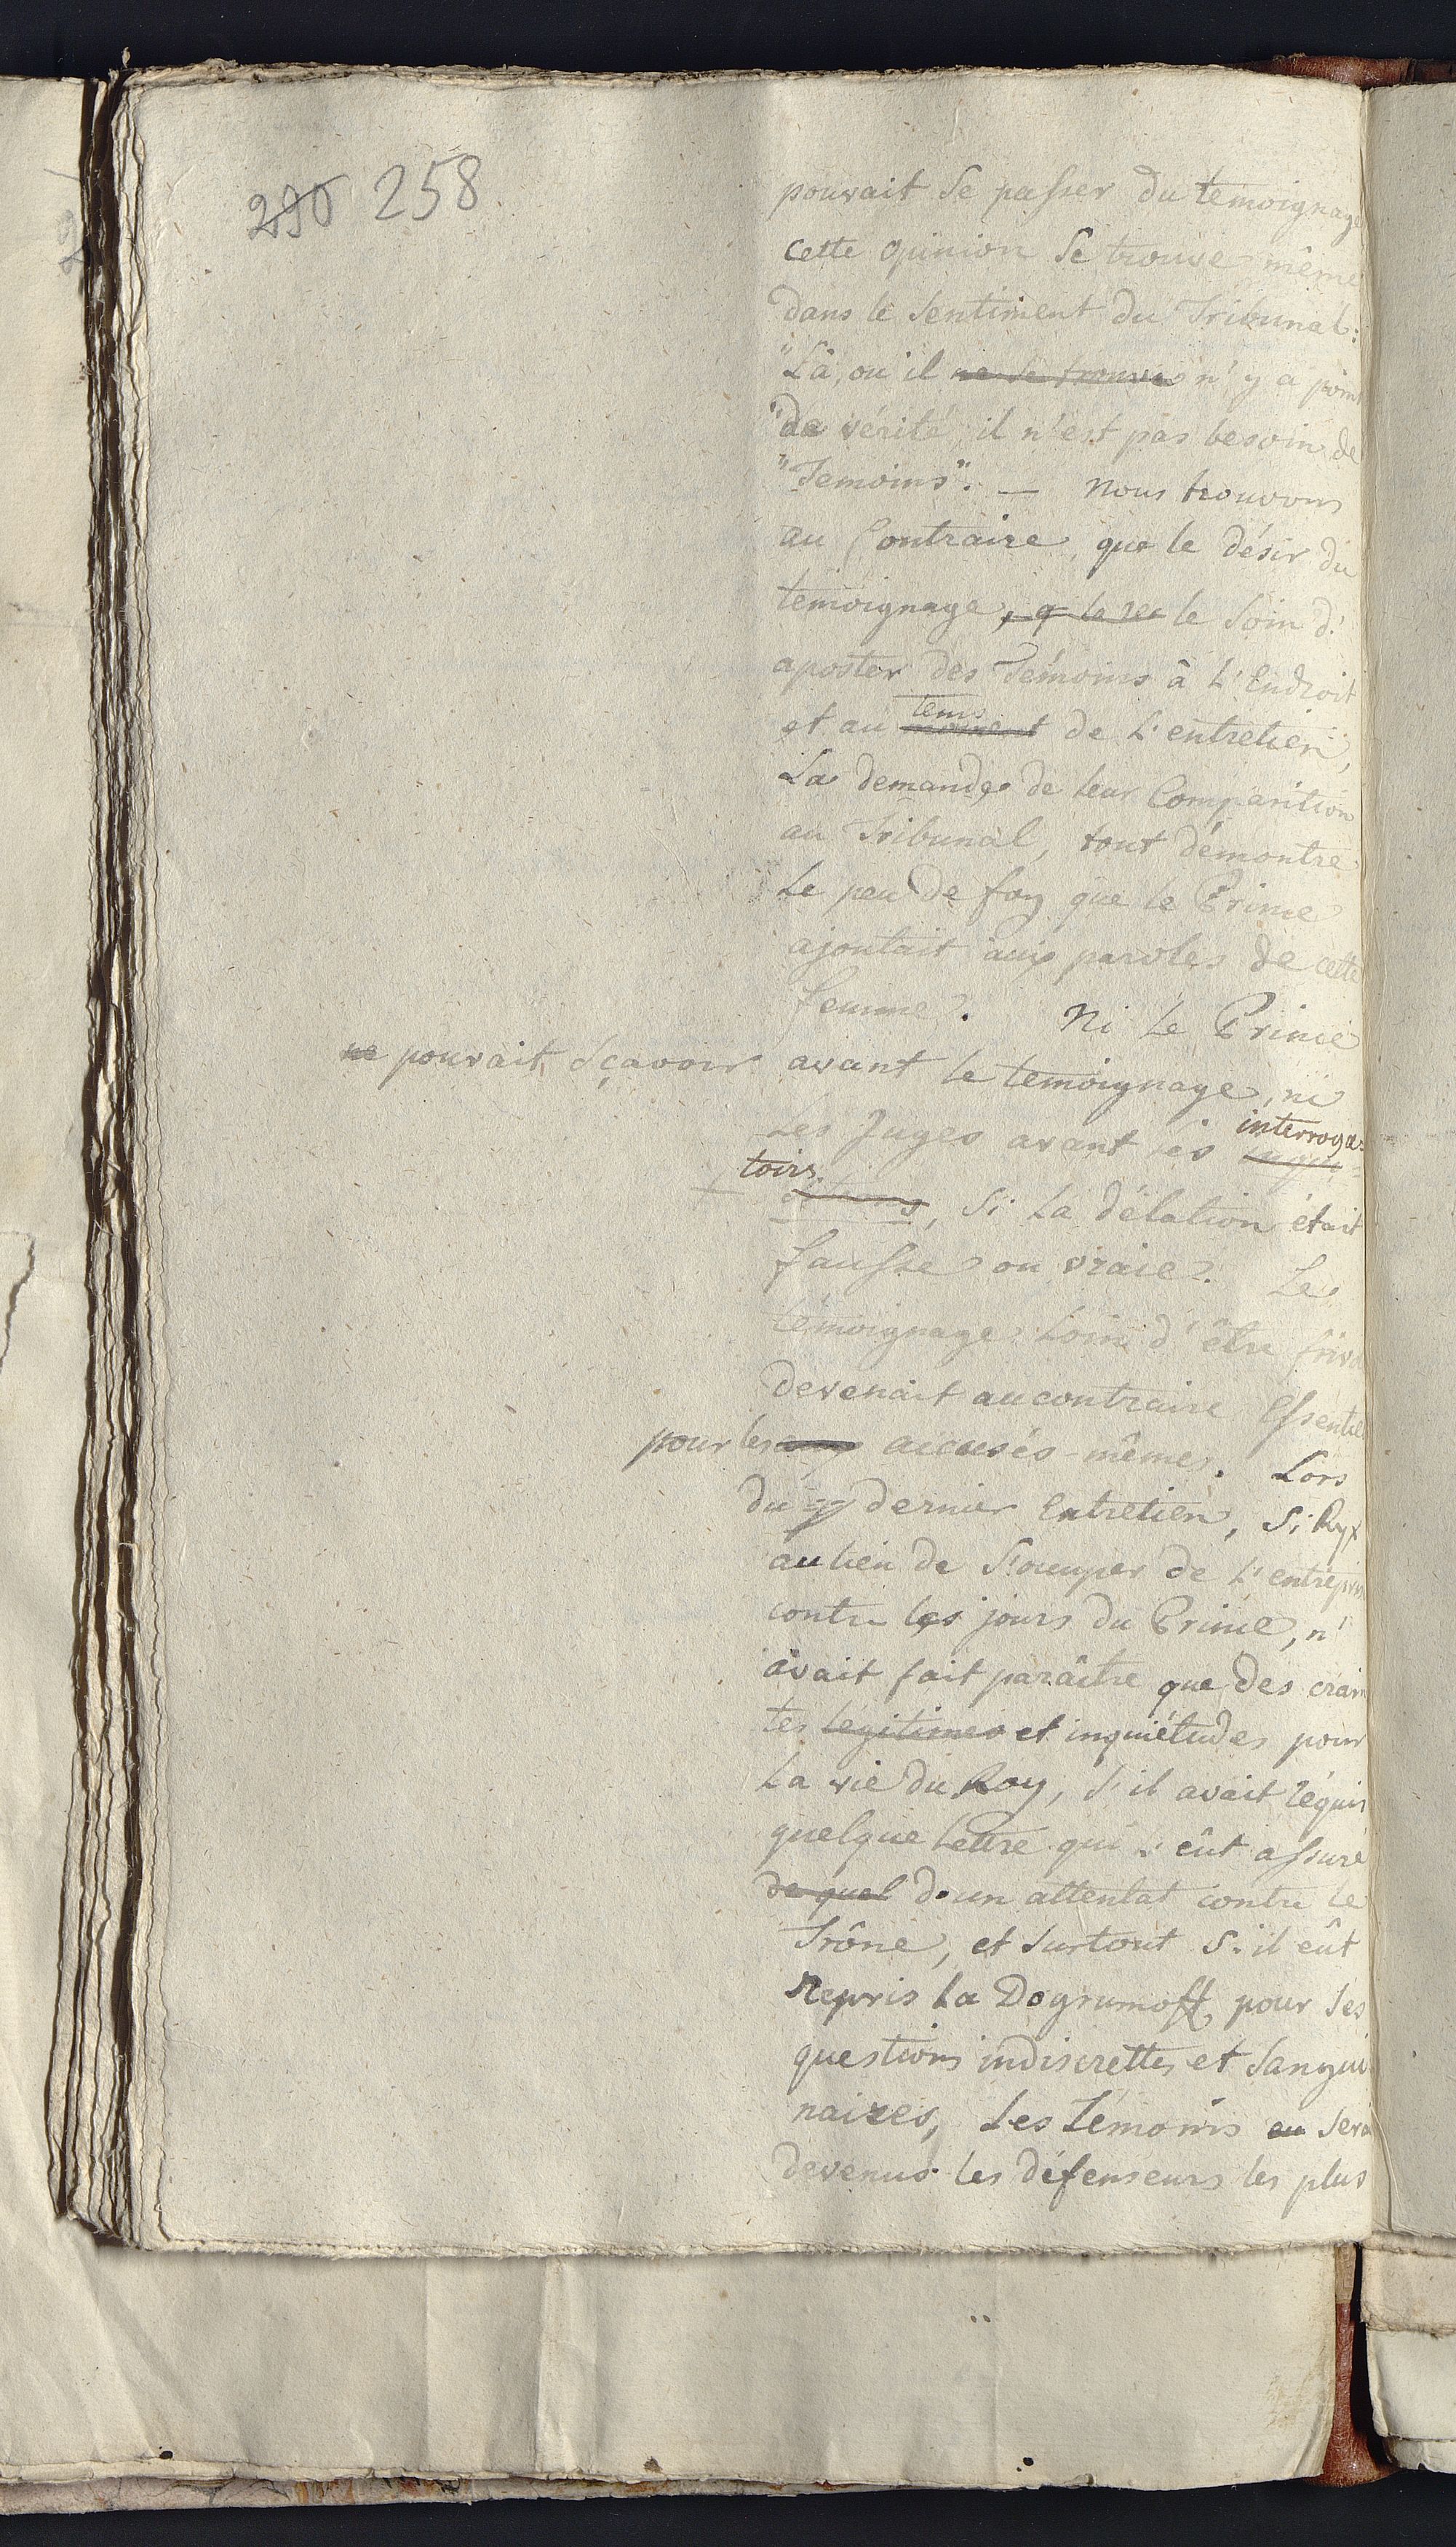 290 258
pouvait se passer du temoignage
cette opinion se trouve même
dans le sentiment du Tribunal:
"Là, ou il ne se trouve n'y a point
"de vérité, il n'est pas besoin de
"Temoins". — Nous trouvons
au Contraire, que le désir du
temoignage, le soin d'
aposter des Témoins à L'Endroit
tems
et au moment de L'entretien,
La demande de leur Comparition
au Tribunal, tout démontre
Le peu de foy que le Prince
ajoutait aux paroles de cette
femme. Ni Le Prince
ne pouvait sçavoir avant le temoignage, ni
interroga-
Les Juges avant les
toirs
, Si La délation était
fausse ou vraie. Le
témoignage loin d'être
devenait aucontraire Essentiel
pour les accusés-mêmes. Lors
du dernier Entretien, Si Ryx
au lieu de s'occuper de L'entrepri
contre les jours du Prince, n'
avait fait paraître que des crain
tes légitimes et inquiétudes pour
La vie du Roy, s'il avait réquis
quelque Lettre qui L'eût assuré
de quel d'un attentat contre le
Trône, et surtout s'il eût
Repris La Dogrumoff pour ses
questions indiscrettes et sangui
naires, Les Témoins en sera
devenus les défenseurs les plus